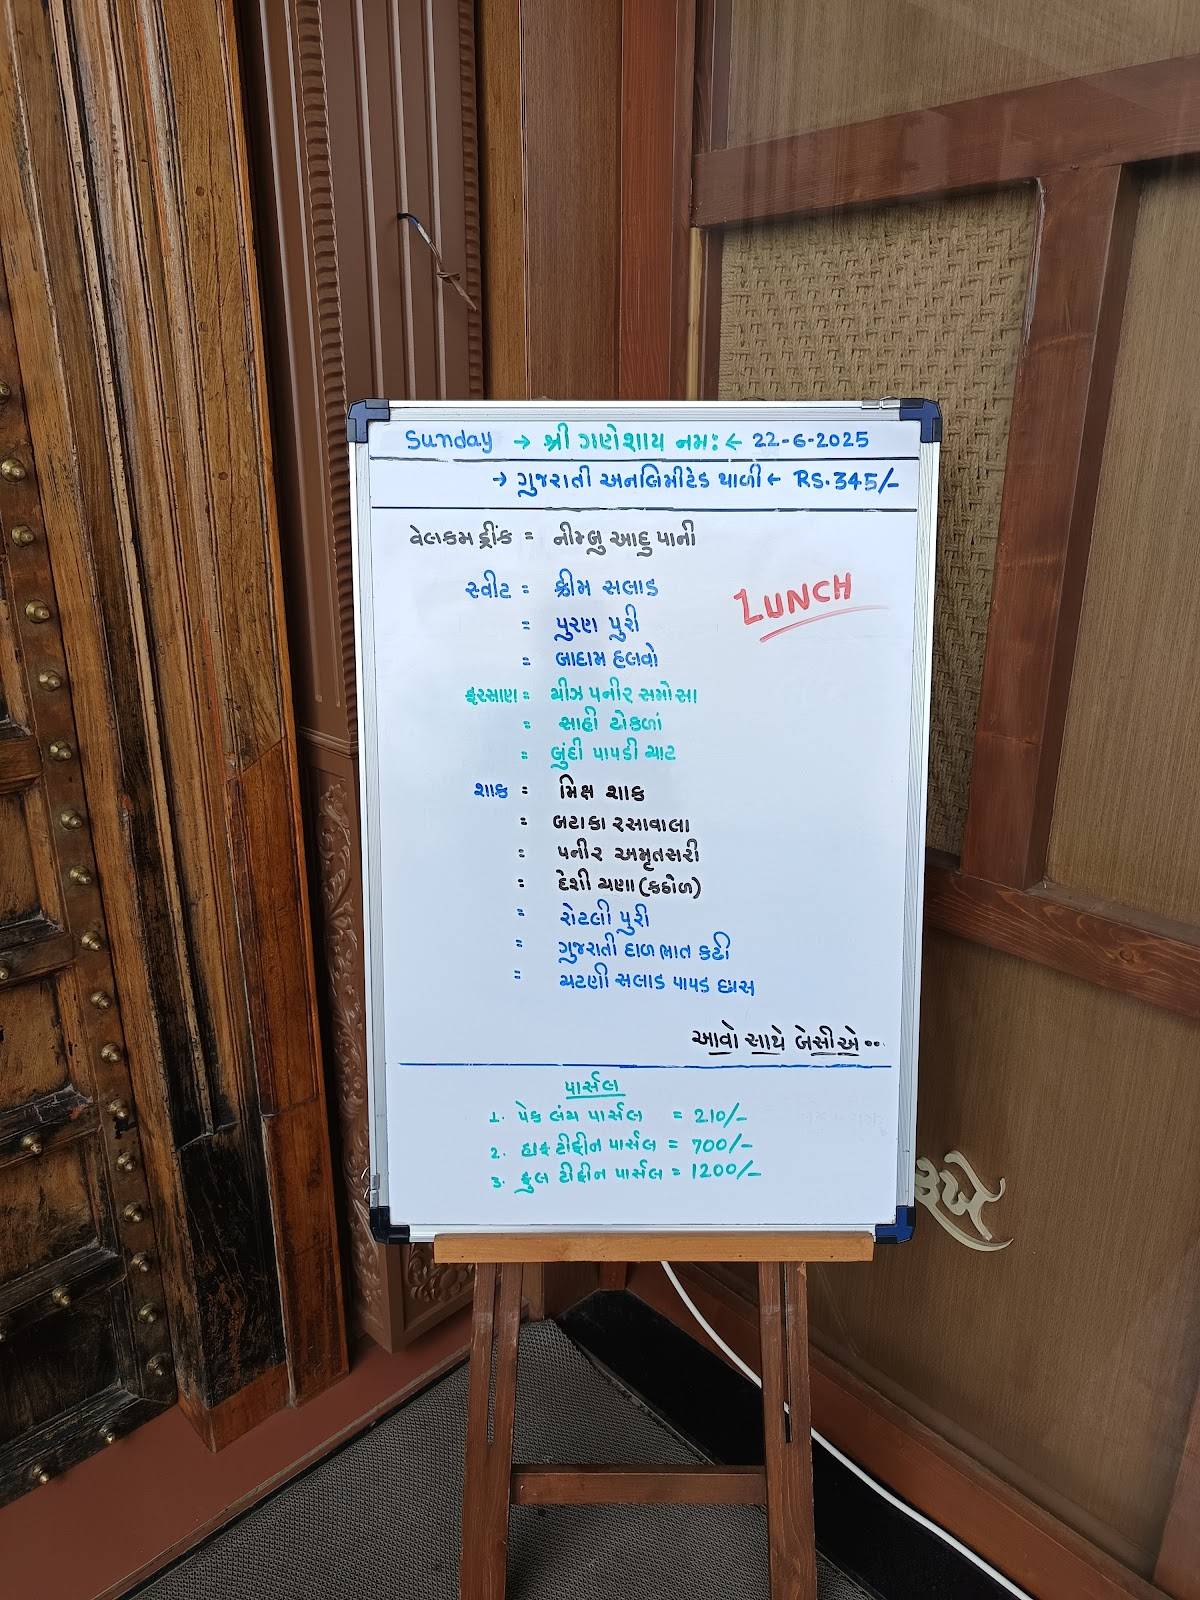 Sunday → શ્રી ગણેશાય નમઃ ← 22-6-2025
→ ગુજરાતી અનલિમીટેડ થાળી ← RS.345/-
વેલકમ ડ્રીંક = નીમ્બુ આદુ પાની
LUNCH
સ્વીટ = ક્રીમ સલાડ
= પુરણ પુરી
= બાદામ હલવો
ફરસાણ = ચીઝ પનીર સમોસા
= સાહી ઢોકળાં
= બુંદી પાપડી ચાટ
શાક = મિક્ષ શાક
= બટાકા રસાવાલા
= પનીર અમૃતસરી
= દેશી ચણા (કઠોળ)
= રોટલી પુરી
= ગુજરાતી દાળ ભાત કઢી
= ચટણી સલાડ પાપડ છાસ
આવો સાથે બેસીએ...
પાર્સલ
1. પેક લંચ પાર્સલ = 210/-
2. હાફ ટીફીન પાર્સલ = 700/-
3. ફુલ ટીફીન પાર્સલ = 1200/-